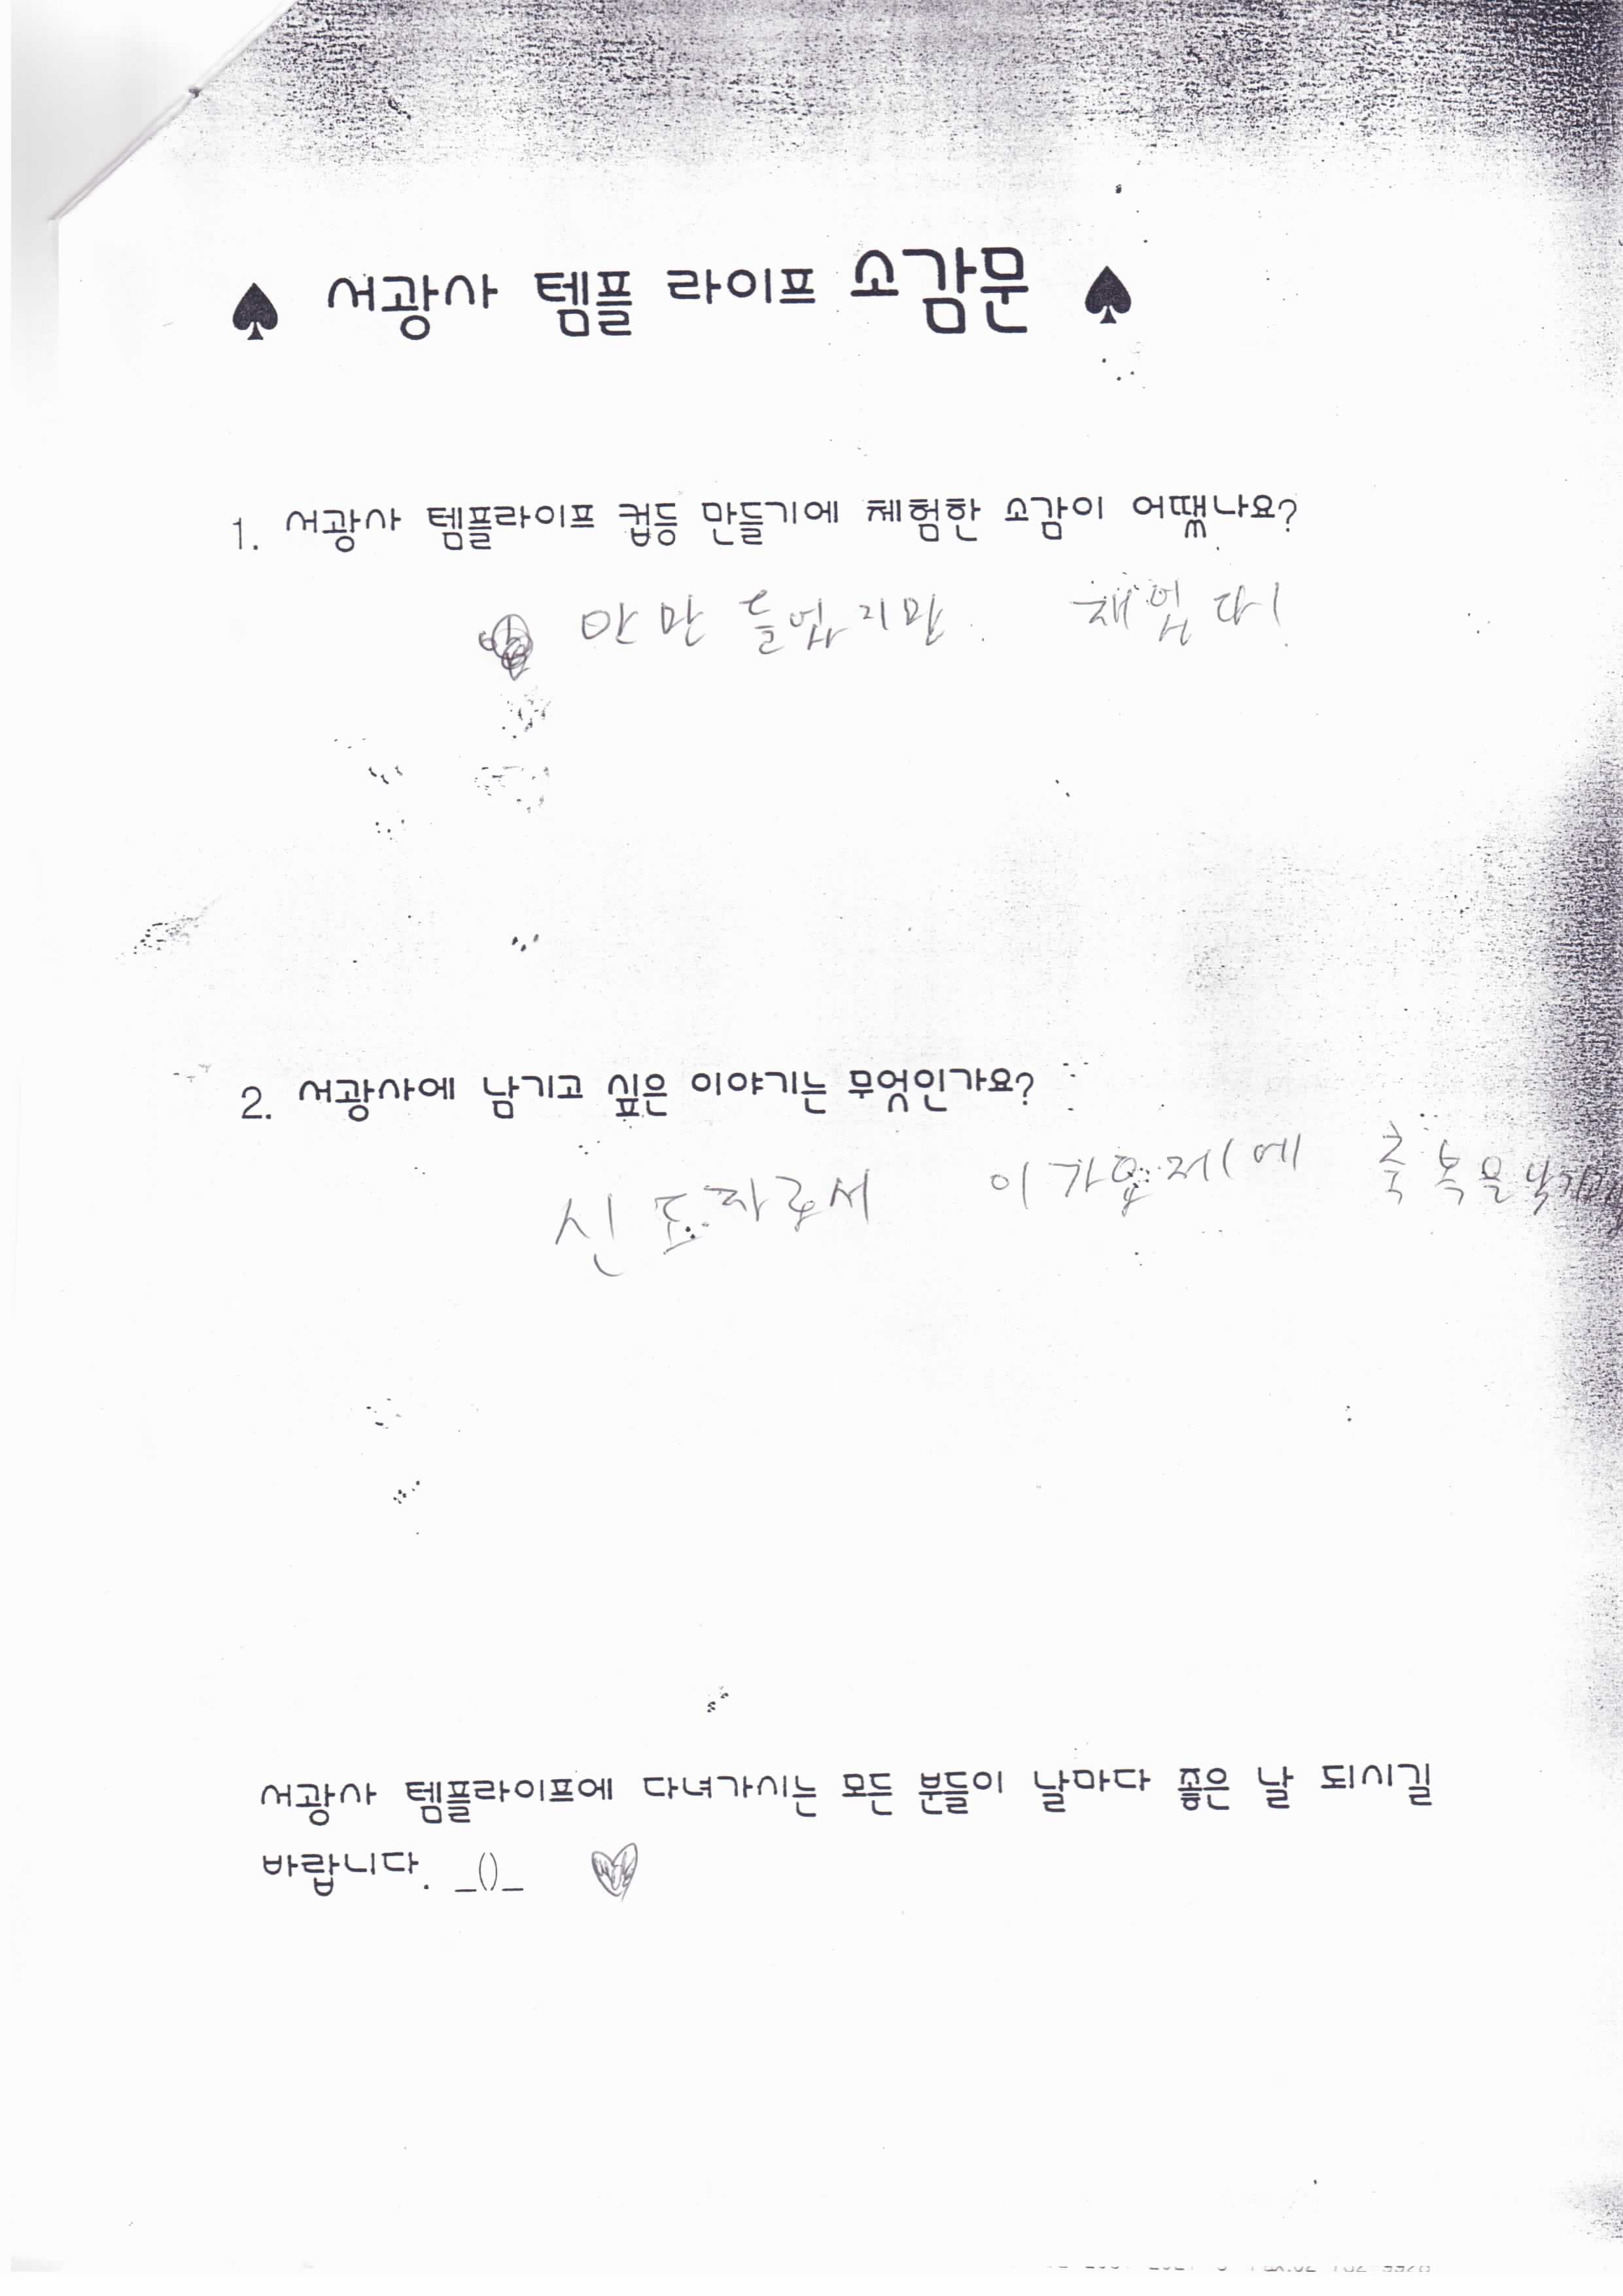 ♠ 서광사 템플 라이프 소감문 ♠
1. 서광사 템플라이프 컵등 만들기에 체험한 소감이 어땠나요?
안 만들었지만 재밌다!
2. 서광사에 남기고 싶은 이야기는 무엇인가요?
신도자로서 축복을
서광사 템플라이프에 다녀가시는 모든 분들이 날마다 좋은 날 되시길
바랍니다. _()_